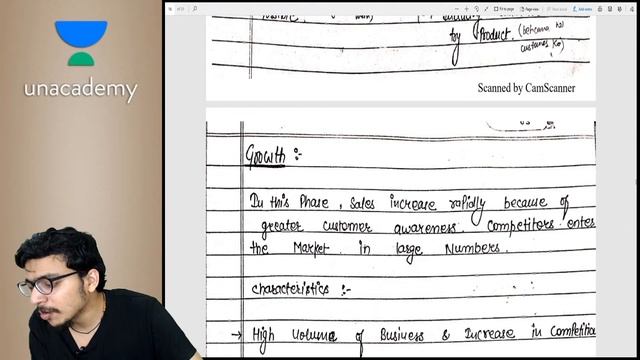 unacademy
Fit to page
Page view
Add notes
by Product. (behcana hai
customer ko)
Scanned by CamScanner
Growth :-
In this Phase, Sales increase rapidly because of
greater customer awareness. Competitors enter
the Market in large Numbers.
Characteristics :-
→ High Volume of Business & Increase in Competitio